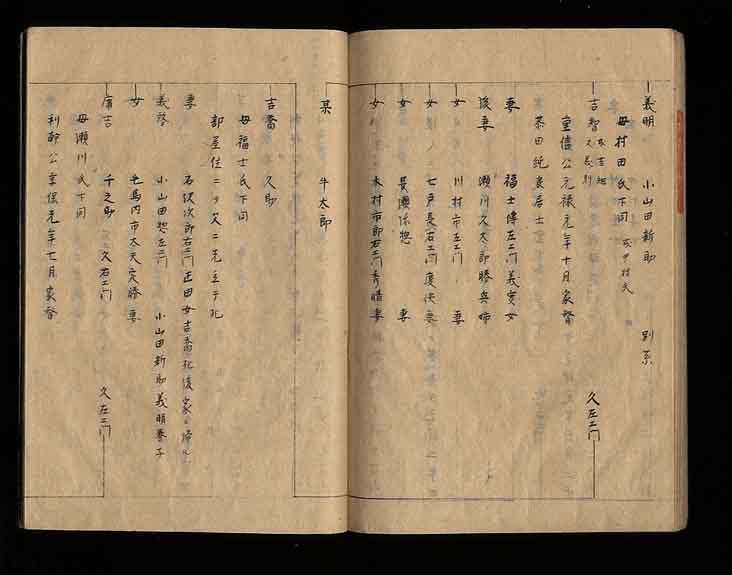 義明 小山田新助 別系
母村田氏下同 或中村氏
吉智 或吉廸 又義則 久左エ門
重信公元禄元年十月家督
茶田純良居士
妻 福士傳左エ門義実女
後妻 瀬川久太郎勝興姉
女 川村市左エ門 妻
女 七戸長右エ門慶供妻
女 長瀬係惣 妻
女 木村市郎右エ門秀晴妻
某 牛太郎
吉喬 久助
母福士氏下同
部屋住ニヲ父ニ先立テ死
妻 石沢次郎右エ門正田女吉喬死後家ニ帰ル
義啓 小山田惣左エ門 小山田新助義明養子
女 毛馬内市太夫実勝妻
庸吉 千之助 久右エ門 久左エ門
母瀬川氏下同
利幹公享保元年七月家督